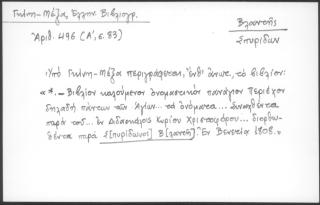 Γκίνη-Μέξα, Ἑλλην. Βιβλιογρ.
Ἀριθ. 496 (Α', σ. 83)
Βλαντῆς
Σπυρίδων
Ὑπὸ Γκίνη-Μέξα περιγράφεται, ἔνθ' ἀνωτ., τὸ βιβλίον:
« *. — Βιβλίον καλούμενον ὀνομαστικὸν πανάγιον περιέχον
δηλαδὴ πάντων τῶν Ἁγίων... τὰ ὀνόματα... Συντεθέντα
παρὰ τοῦ... ἐν Διδασκάλοις Κυρίου Χριστοφόρου... διορθω-
θέντα παρὰ Σ[πυρίδωνος] Β[λαντῆ]. Ἐν Βενετίᾳ 1808.»